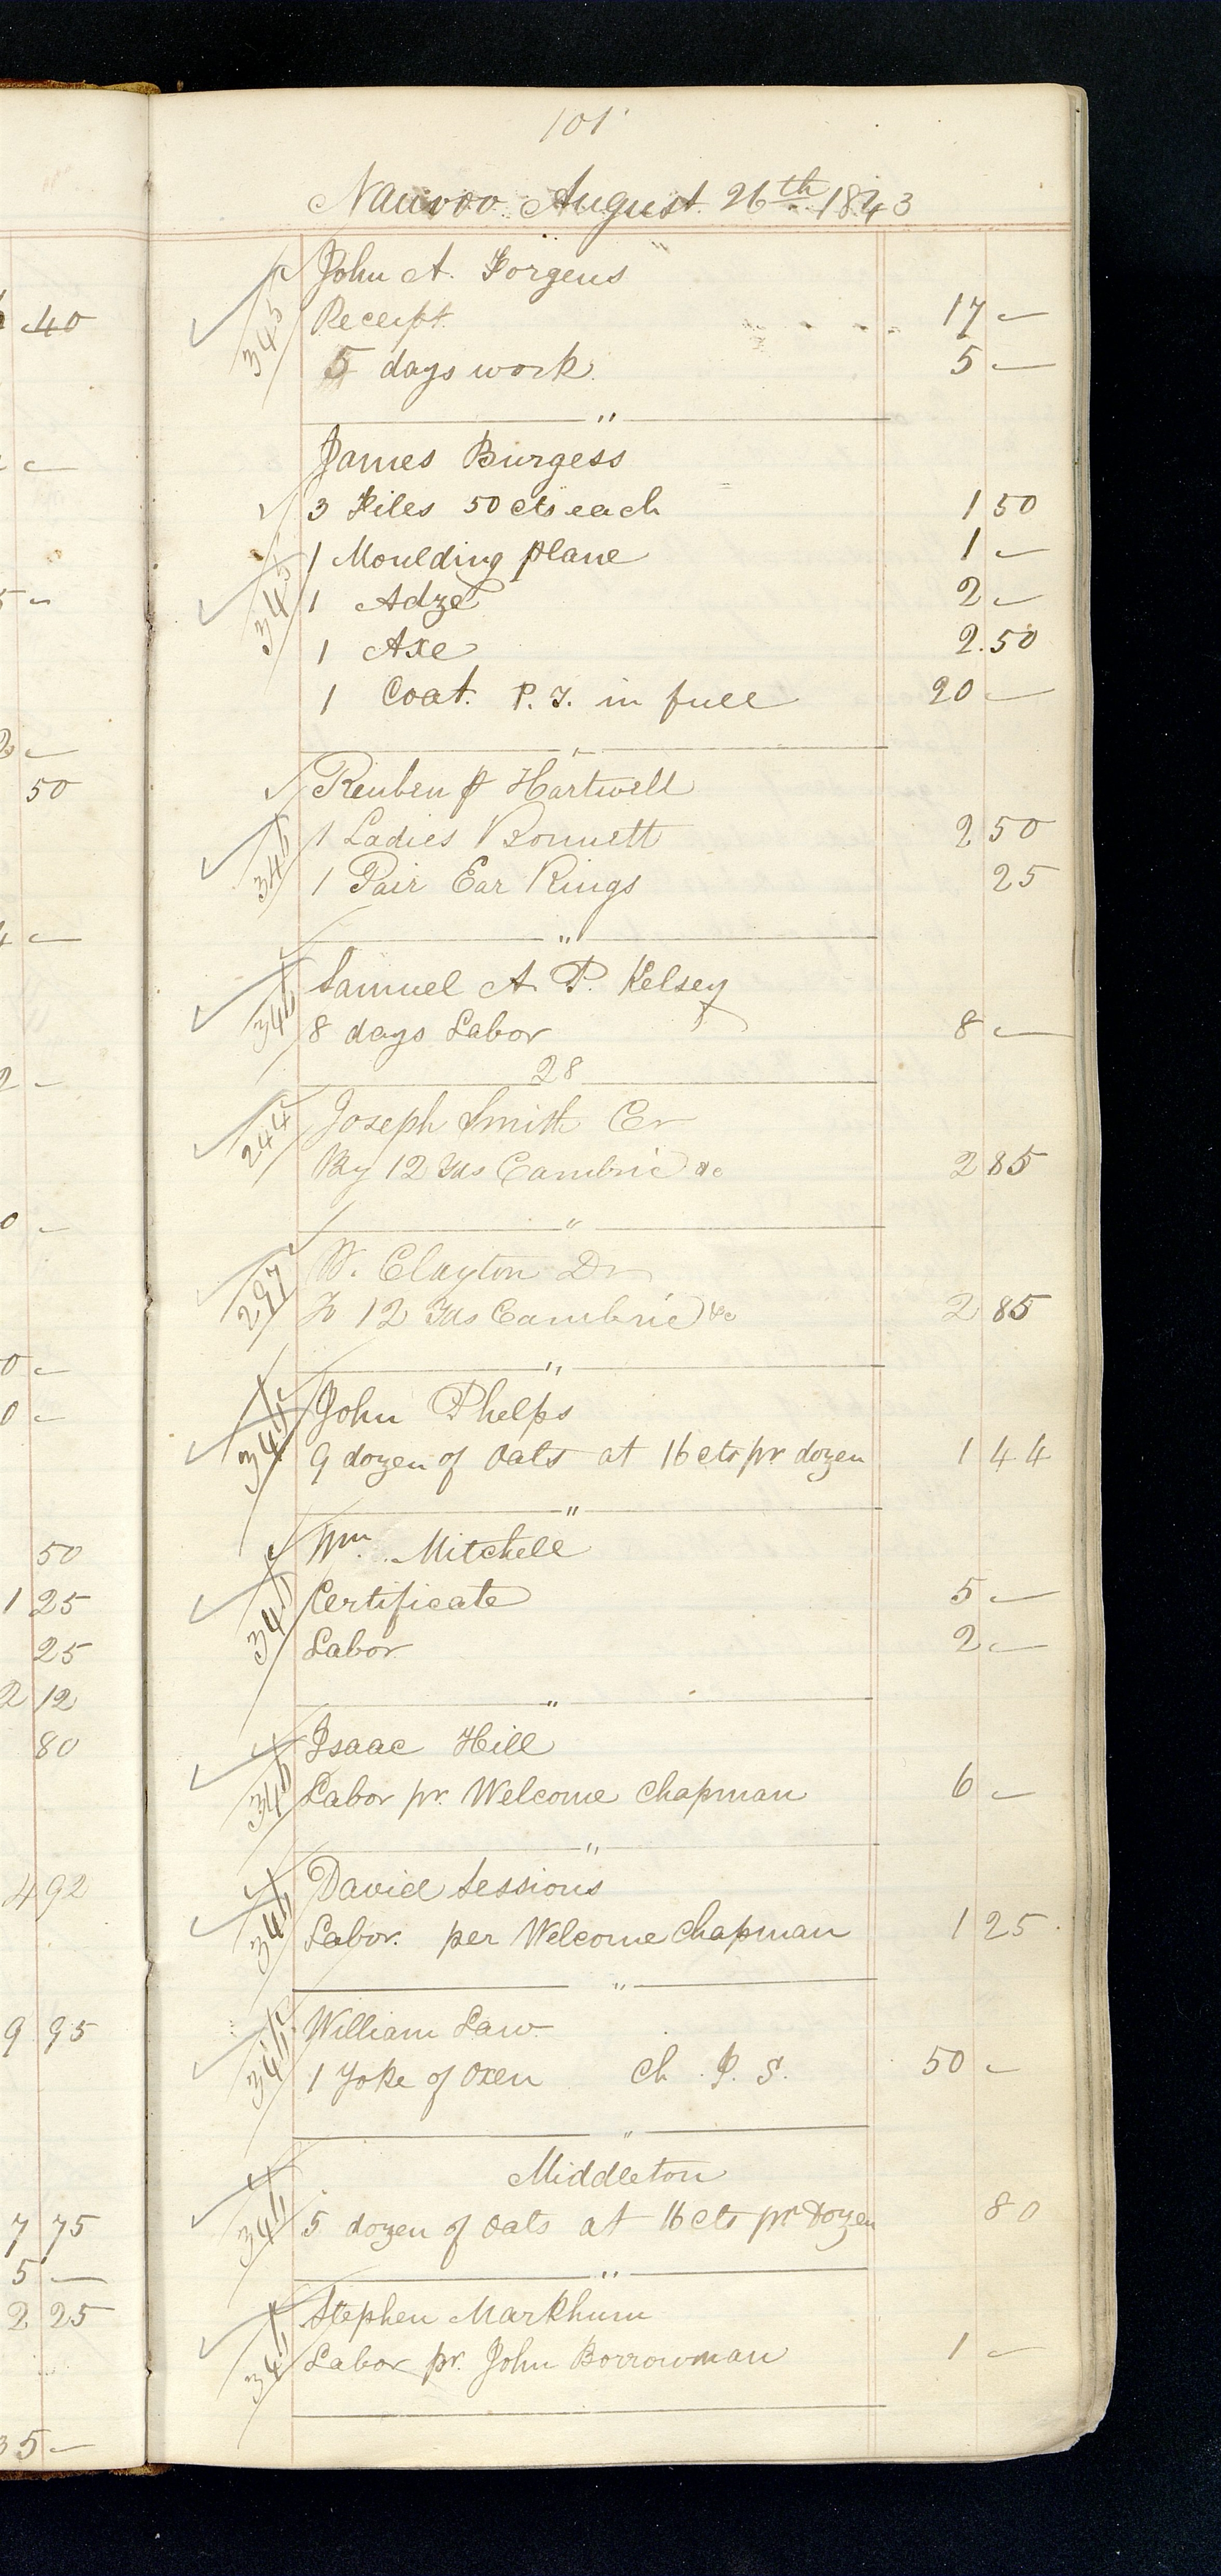 101
Nauvoo August 26th 1843
40
John A. Forgeus
345
Receipt 17 —
5 days work 5 —
"
James Burgess
3 Files 50 cts each 1 50
1 Moulding plane 1 —
345
1 Adze 2 —
1 Axe 2.50
1 Coat. P. T. in full 20 —
"
50
Reuben Hartwell
1 Ladies Bonnett 2 50
346
1 Pair Ear Rings 25
"
Samuel A. P. Kelsey
346
8 days Labor 8 —
28
244
Joseph Smith Cr
By 12 Yds Cambric &c 2 85
"
297
W. Clayton Dr
To 12 Yds Cambric &c 2 85
"
John Phelps
9 dozen of Oats at 16 cts pr dozen 1 44
"
50
Wm. Mitchell
1 25
Certificate 5 —
25
Labor 2 —
2 12
"
80
Isaac Hill
346
Labor pr. Welcome Chapman 6 —
"
4 92
David Sessions
346
Labor. per Welcome Chapman 1 25
"
9 95
William Law
346
1 Yoke of Oxen Ch. J. S. 50 —
"
Middleton
7 75
346
5 dozen of Oats at 16 cts pr Dozen 80
5 —
"
2 25
Stephen Markhum
346
Labor pr. John Borrowman 1 —
35 —